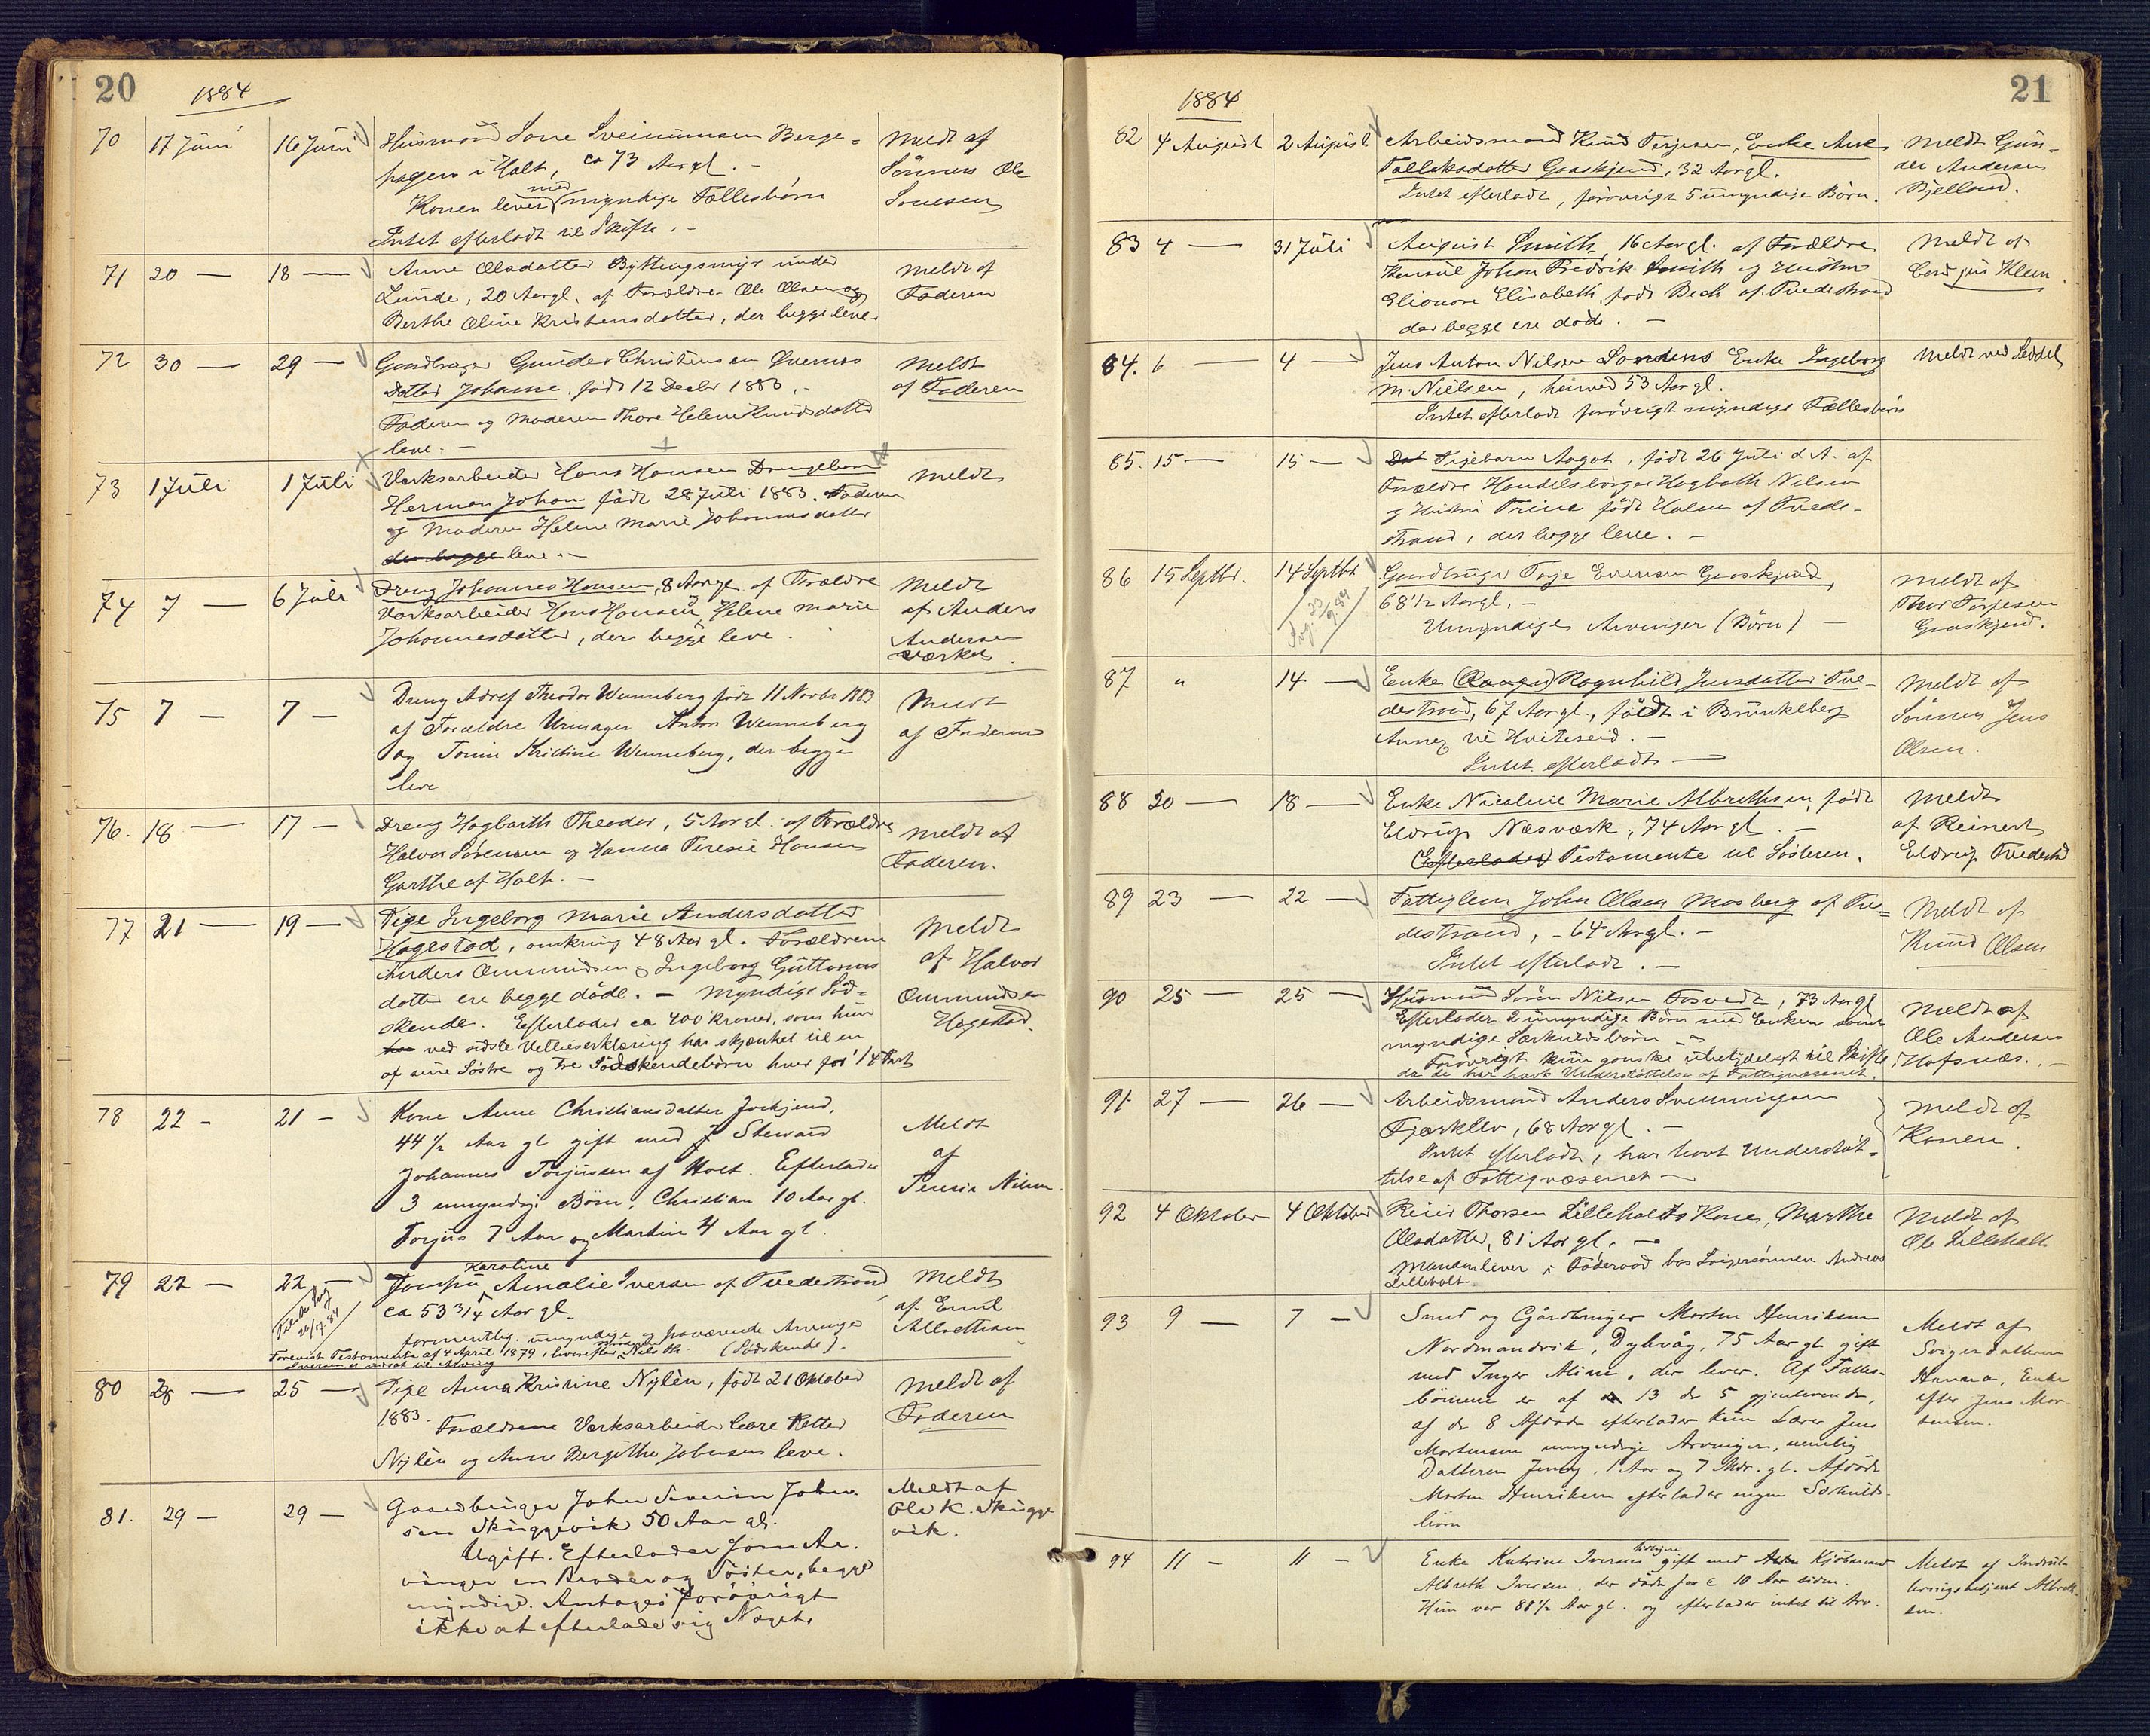 20
1884
70 17 Juni 16 Juni Husmand Sone Sveinumsen Berge= Meldt af
hagen i Holt, ca 73 Aar gl. – Sønnen Ole
Konen lever med myndige Fællesbørn Sonesen
Intet efterladt til Skifte. –
71 20 — 18 — Anne Olsdatter Byttingsmyr under Meldt af
Lunde, 20 Aar gl. af Forældre Ole Olsen og Faderen
Berthe Oline Kristensdatter, der begge leve.
72 30 — 29 — Gaardbruger Gunder Christensen Qvernes Meldt
Datter Johanne, født 12 Decbr 1880. – af Faderen
Faderen og Moderen Thore Helene Knudsdatter
leve. –
73 1 Juli 1 Juli Værksarbeider Hans Hansen Drengebarn Meldt
Herman Johan født 28 Juli 1883. Faderen
og Moderen Helene Marie Johannesdatter
der begge leve. –
74 7 — 6 Juli Dreng Johannes Hansen, 8 Aar gl. af Forældre Meldt
Værksarbeider Hans Hansen og Helene Marie af Anders
Johannesdatter, der begge leve. Andersen
Værket.
75 7 — 7 — Dreng Adolf Theodor Wenneberg født 11 Novbr 1883 Meldt
af Forældre Urmager Anton Wenneberg af Faderen
og Tomine Kristine Wenneberg, der begge
leve
76. 18 — 17 — Dreng Hagbarth Theodor, 5 Aar gl. af Forældre Meldt af
Halvor Sørensen og Hanna Teresie Hansen Faderen.
Garthe af Holt. –
77 21 — 19 — Pige Ingeborg Marie Andersdatter Meldt
Hagestad, omkring 48 Aar gl. Forældrene af Halvor
Anders Ommundsen og Ingeborg Guttorms Ommundsen
datter ere begge døde. – Myndige Sød= Hagestad.
skende. Efterlader ca 400 Kroner, som hun
har ved sidste Villieserklæring har skjænket til en
af sine Søstre og tre Sødskendebørn hver for 1/4 Part
78 22 – 21 – Kone Anne Christiansdatter Joskjend, Meldt
44 1/2 Aar gl gift med Steward af
Johannes Torjussen af Holt. Efterlader Teresia Nilsen.
3 umyndige Børn, Christian 10 Aar gl.
Torjus 7 Aar og Martin 4 Aar gl.
79 22 — 22 — Jomfru Karoline Amalie Iversen af Tvedestrand, Meldt
ca 53 3/4 Aar gl. af Emil
formentlig umyndige og fraværende Arvinger Albrethsen
Forevist Testamente af 4 April 1879, hvorefter Nils Th. (Sødskende).
Iversen er indsat til Arving
80 28 — 25 — Pige Anna Kristine Nylén, født 21 Oktober Meldt af
1883. Forældrene Værksarbeider Carl Petter Faderen
Nylén og Anne Bergithe Johnsen leve.
81. 29 – 29 – Gaardbruger John Severin John= Meldt af
sen Skuggevik 50 Aar gl. Ole K. Skugge
Ugift. Efterlader som Ar. vik.
vinger en Broder og Søster, begge
myndige. Antages forøvrigt
ikke at efterlade sig Noget.
21
1884
82 4 August 2 August Arbeidsmand Knud Terjesen, Enke Anne Meldt Gun-
Tallaksdatter Gaaskjend, 32 Aar gl. der Andersen
Intet efterladt, forøvrigt 5 umyndige Børn. Bjelland.
83 4 — 31 Juli August Smith, 16 Aar gl. af Forældre Meldt af
Konsul Johan Fredrik Smith og Hustru Cand jur Kleen.
Elionore Elisabeth født Bech af Tvedestrand
der begge ere døde. –
84. 6 — 4 — Jens Anton Nilsen Sandens Enke Ingeborg Meldt ved Seddel
M. Nielsen, henved 53 Aar gl.
Intet efterladt forøvrigt myndige Fællesbørn
85. 15 — 15 — Dat Pigebarn Aagot, født 26 Juli d.A. af
Forældre Handelsborger Hagbath Nilsen
og Hustru Trine født Holm af Tvede-
strand, der begge leve. –
86 15 Septbr. 14 Septbr Gaardbruger Terje Evensen Gaaskjend, Meldt af
68 1/2 Aar gl. – Thor Terjesen
Umyndige Arvinger (Børn) – Gaaskjend.
87 " 14 — Enke Ragnhild Jensdatter Tve- Meldt af
destrand, 67 Aar gl., født i Brunkeberg Sønnen Jens
Annex til Hviteseid. – Olsen.
Intet efterladt —
88 20 — 18 — Enke Nicoline Marie Albrethsen, født Meldt
Eldrup Næsværk, 74 Aar gl. – af Reinert
(Efterlader) Testamente til Søsteren. Eldrup Tvedestrd
89 23 — 22 — Fattiglem John Olsen Mosberg af Tve= Meldt af
destrand, – 64 Aar gl. – Knud Olsen
Intet efterladt. –
90 25 — 25 — Husmand Søren Nilsen Fosvedt, 73 Aar gl Meldt af
Efterlader 2 umyndige Børn med Enken samt Ole Andersen
myndige Særkuldsbørn – Hofsnæs.
Forøvrigt kun ganske ubetydeligt til Skifte
da de har havt Understøttelse af Fattigvæsenet.
91. 27 — 26 — Arbeidsmand Anders Svenningsen Meldt af
Fjærklev, 68 Aar gl. – Konen.
Intet efterladt, har havt Understøt-
telse af Fattigvæsenet —
92 4 Oktober 4 Oktober Reier Thorsen Lilleholts Kone, Marthe Meldt af
Olsdatter, 81 Aar gl. — Ole Lilleholt
Manden lever i Føderaad hos Svigersønnen Andreas
Lilleholt
93 9 — 7 — Smed og Gårdbruger Morten Henriksen Meldt af
Nordmandvik, Dybvåg, 75 Aar gl. gift Svigerdatteren
med Inger Aline, der lever. Af Fælles- Hanna, Enke
børnene er af 13 de 5 gjenlevende, efter Jens Mor-
af de 8 Afdøde efterlader kun Lærer Jens tensen.
Mortensen umyndige Arvinger, nemlig
Datteren Jenny, 1 Aar og 7 Mdr. gl. Afdøde
Morten Henriksen efterlader ingen Særkulds-
børn
94 11 – 11 – Enke Katrine Iversen gift med Kjøbmand Meldt af Inddriv-
Albreth Iversen, der døde for c 10 Aar siden. ningsbetjent Albreth-
Hun var 88 1/2 Aar gl. og efterlader intet til Arv. sen.